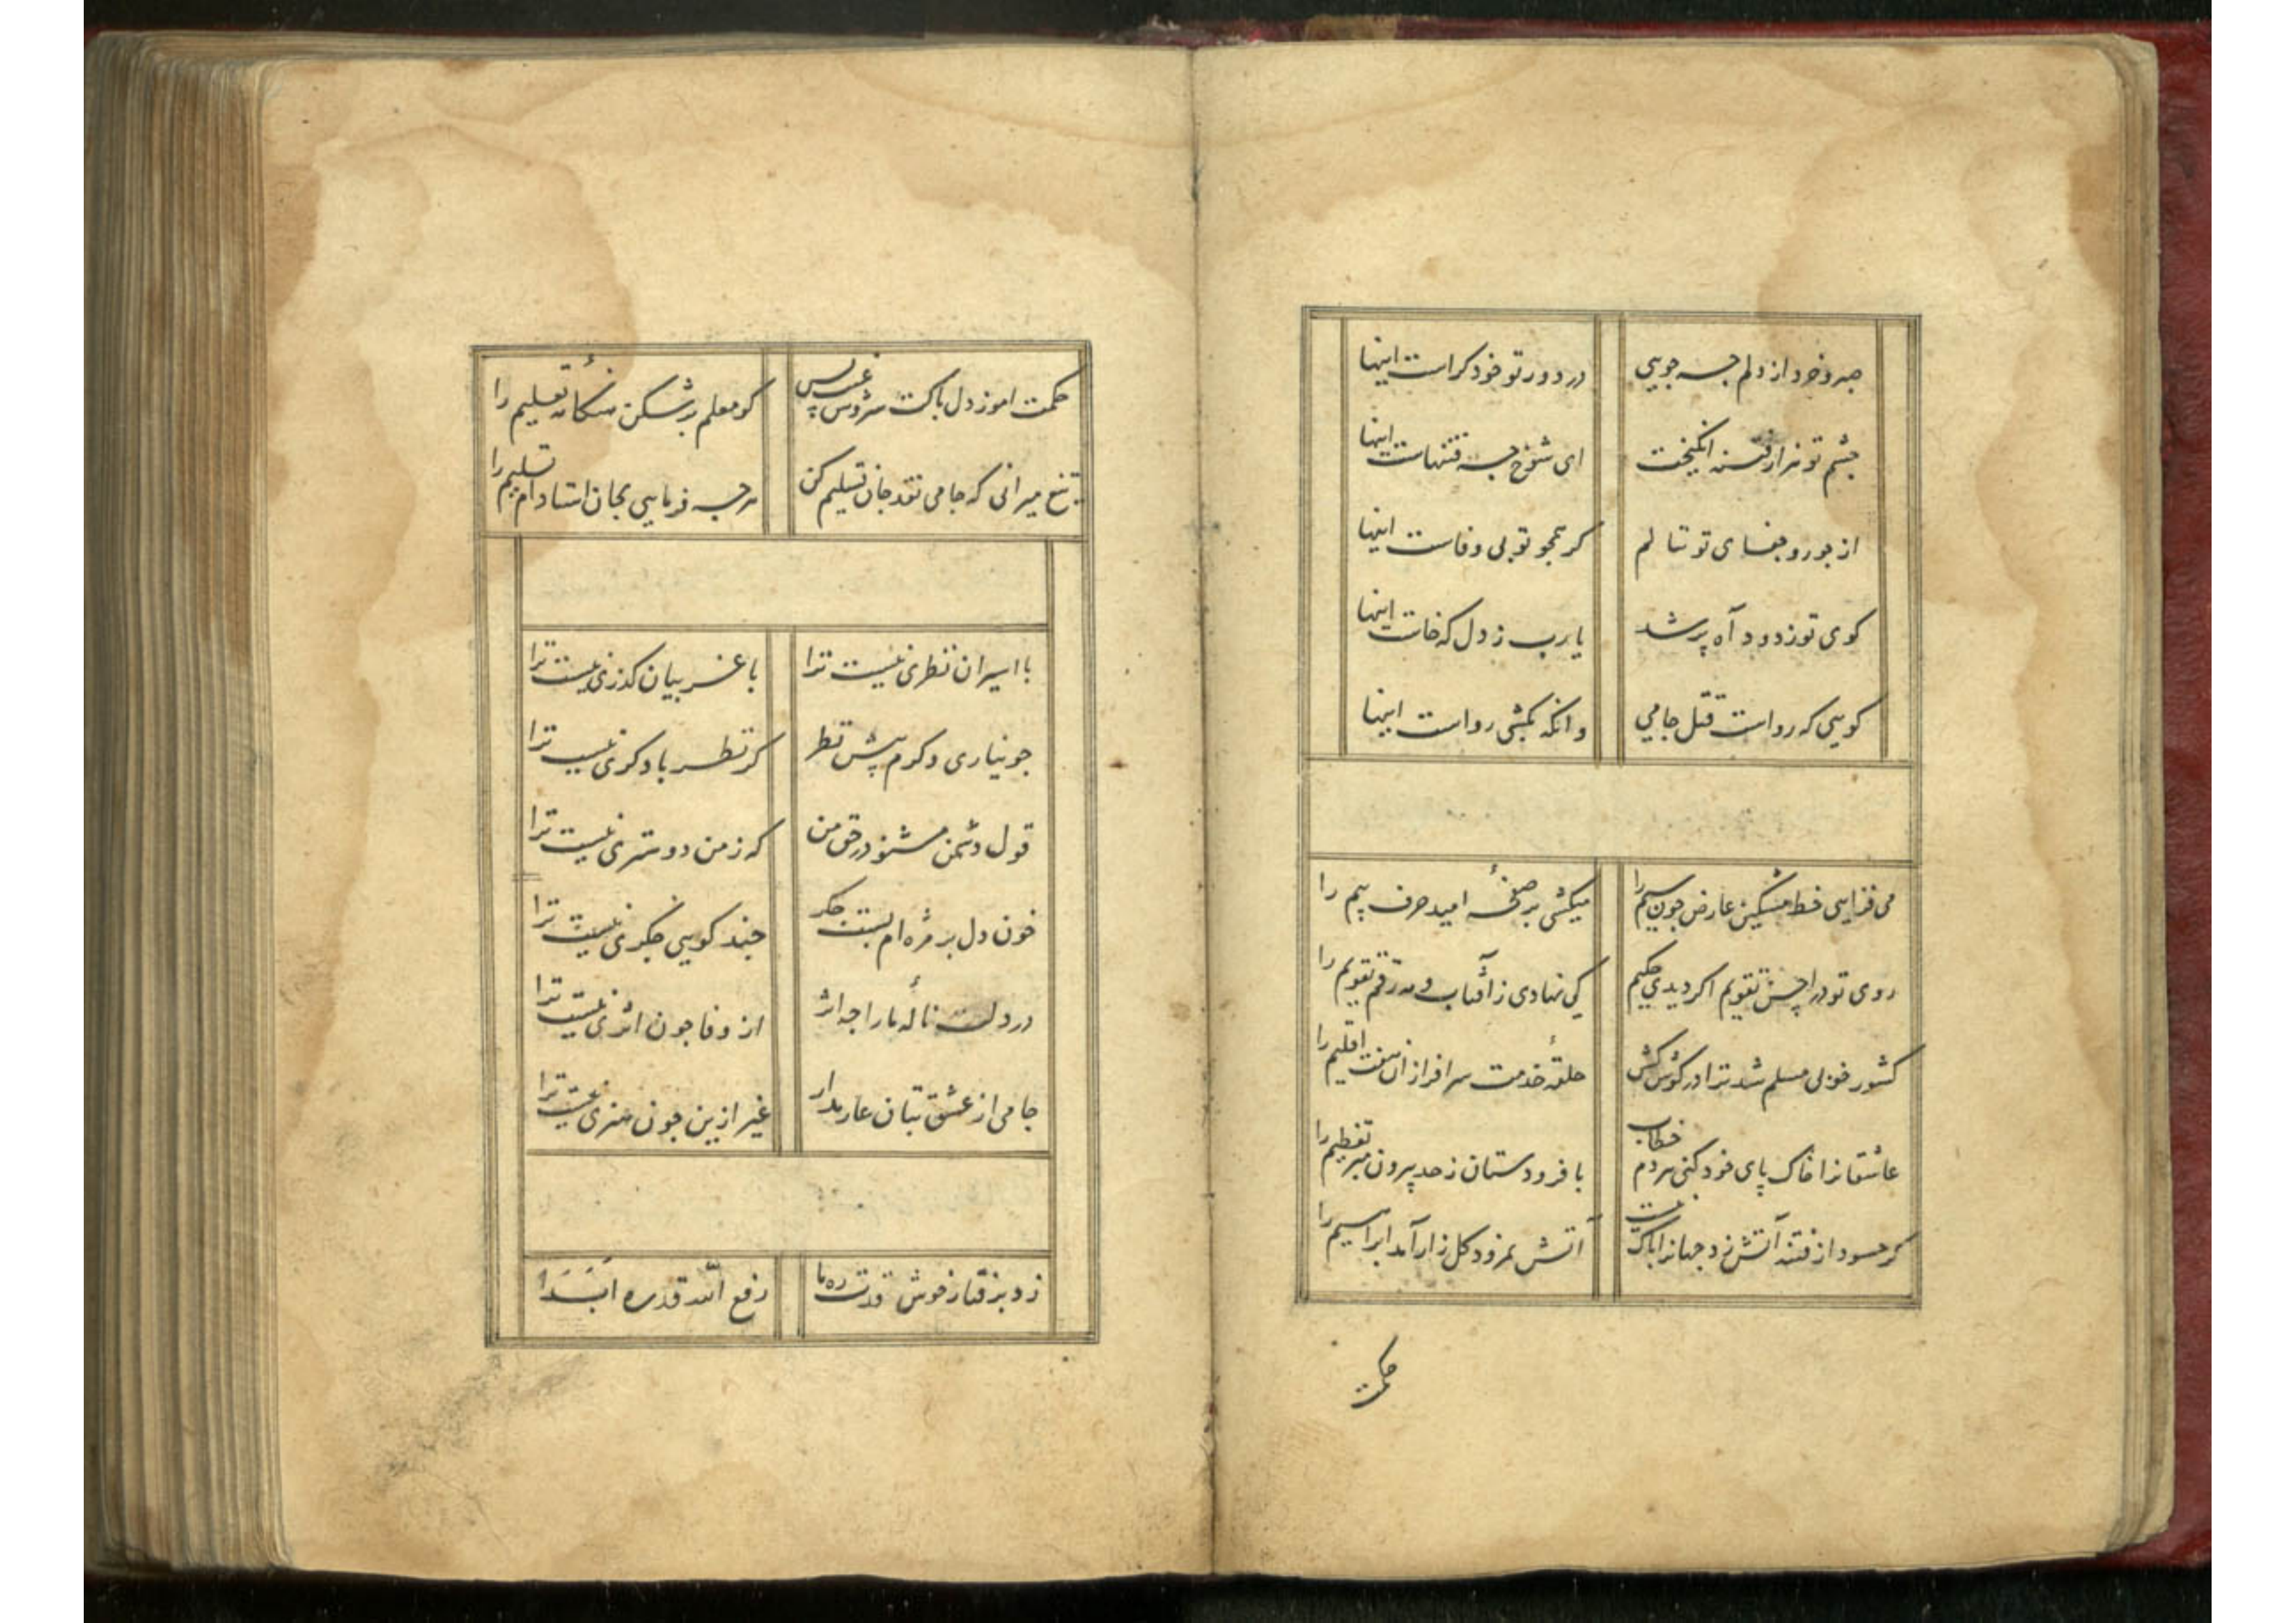 صبر و خرد از دلم چه جویی
در دور تو خود کراست اینها
چشم تو هزار فتنه انکیخت
ای شوخ چه فتنهاست اینها
از جور و جفای تو ننالم
کر همچو تو بی وفاست اینها
کوی تو ز دود آه پر شد
یارب ز دل که خاست اینها
کویی که رواست قتل جامی
وانکه بکشی رواست اینها
می فزایی خط مشکین عارض چون سیم را
میکشی بر صفحهٔ امید حرف بیم را
روی تو در احسن تقویم اکر دیدی حکیم
کی نهادی ز آفتاب و مه رقم تقویم را
کشور خوبی مسلم شد ترا در کوش کش
حلقهٔ خدمت سرافرازان هفت اقلیم را
عاشقانرا خاک پای خود کنی هر دم خطاب
با فرودستان ز حد بیرون مبر تعظیم را
کر حسود از فتنه آتش زد جهانرا باک نیست
آتش نمرود کلزار آمد ابراهیم را
حکمت
حکمت اموز دل پاکت سروش غیب بس
کو معلم بر شکن هنکامهٔ تعلیم را
تیغ میرانی که جامی نقد جان تسلیم کن
هرچه فرمایی بجان استاده ام تسلیم را
با اسیران نظری نیست ترا
با غریبان کذری نیست ترا
چو نیاری دکرم پیش نظر
کر نظر با دکری نیست ترا
قول دشمن مشنو در حق من
که ز من دوستری نیست ترا
خون دل بر مژه ام بست جکر
چند کویی جکری نیست ترا
در دلت نالهٔ ما را چه اثر
از وفا چون اثری نیست ترا
جامی از عشق بتان عار مدار
غیر ازین چون هنری نیست ترا
زد برفتار خوش قدت ره ما
رفع الله قدره ابدا